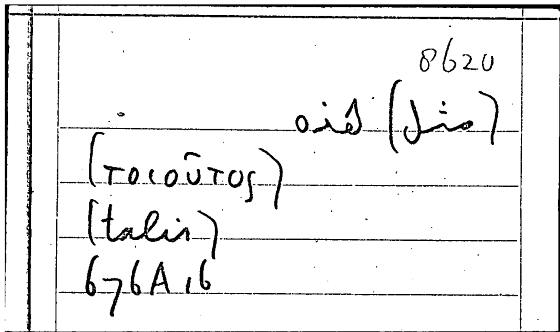 8620
(مثل) هذه
(τοιοῦτος)
(talis)
676A16